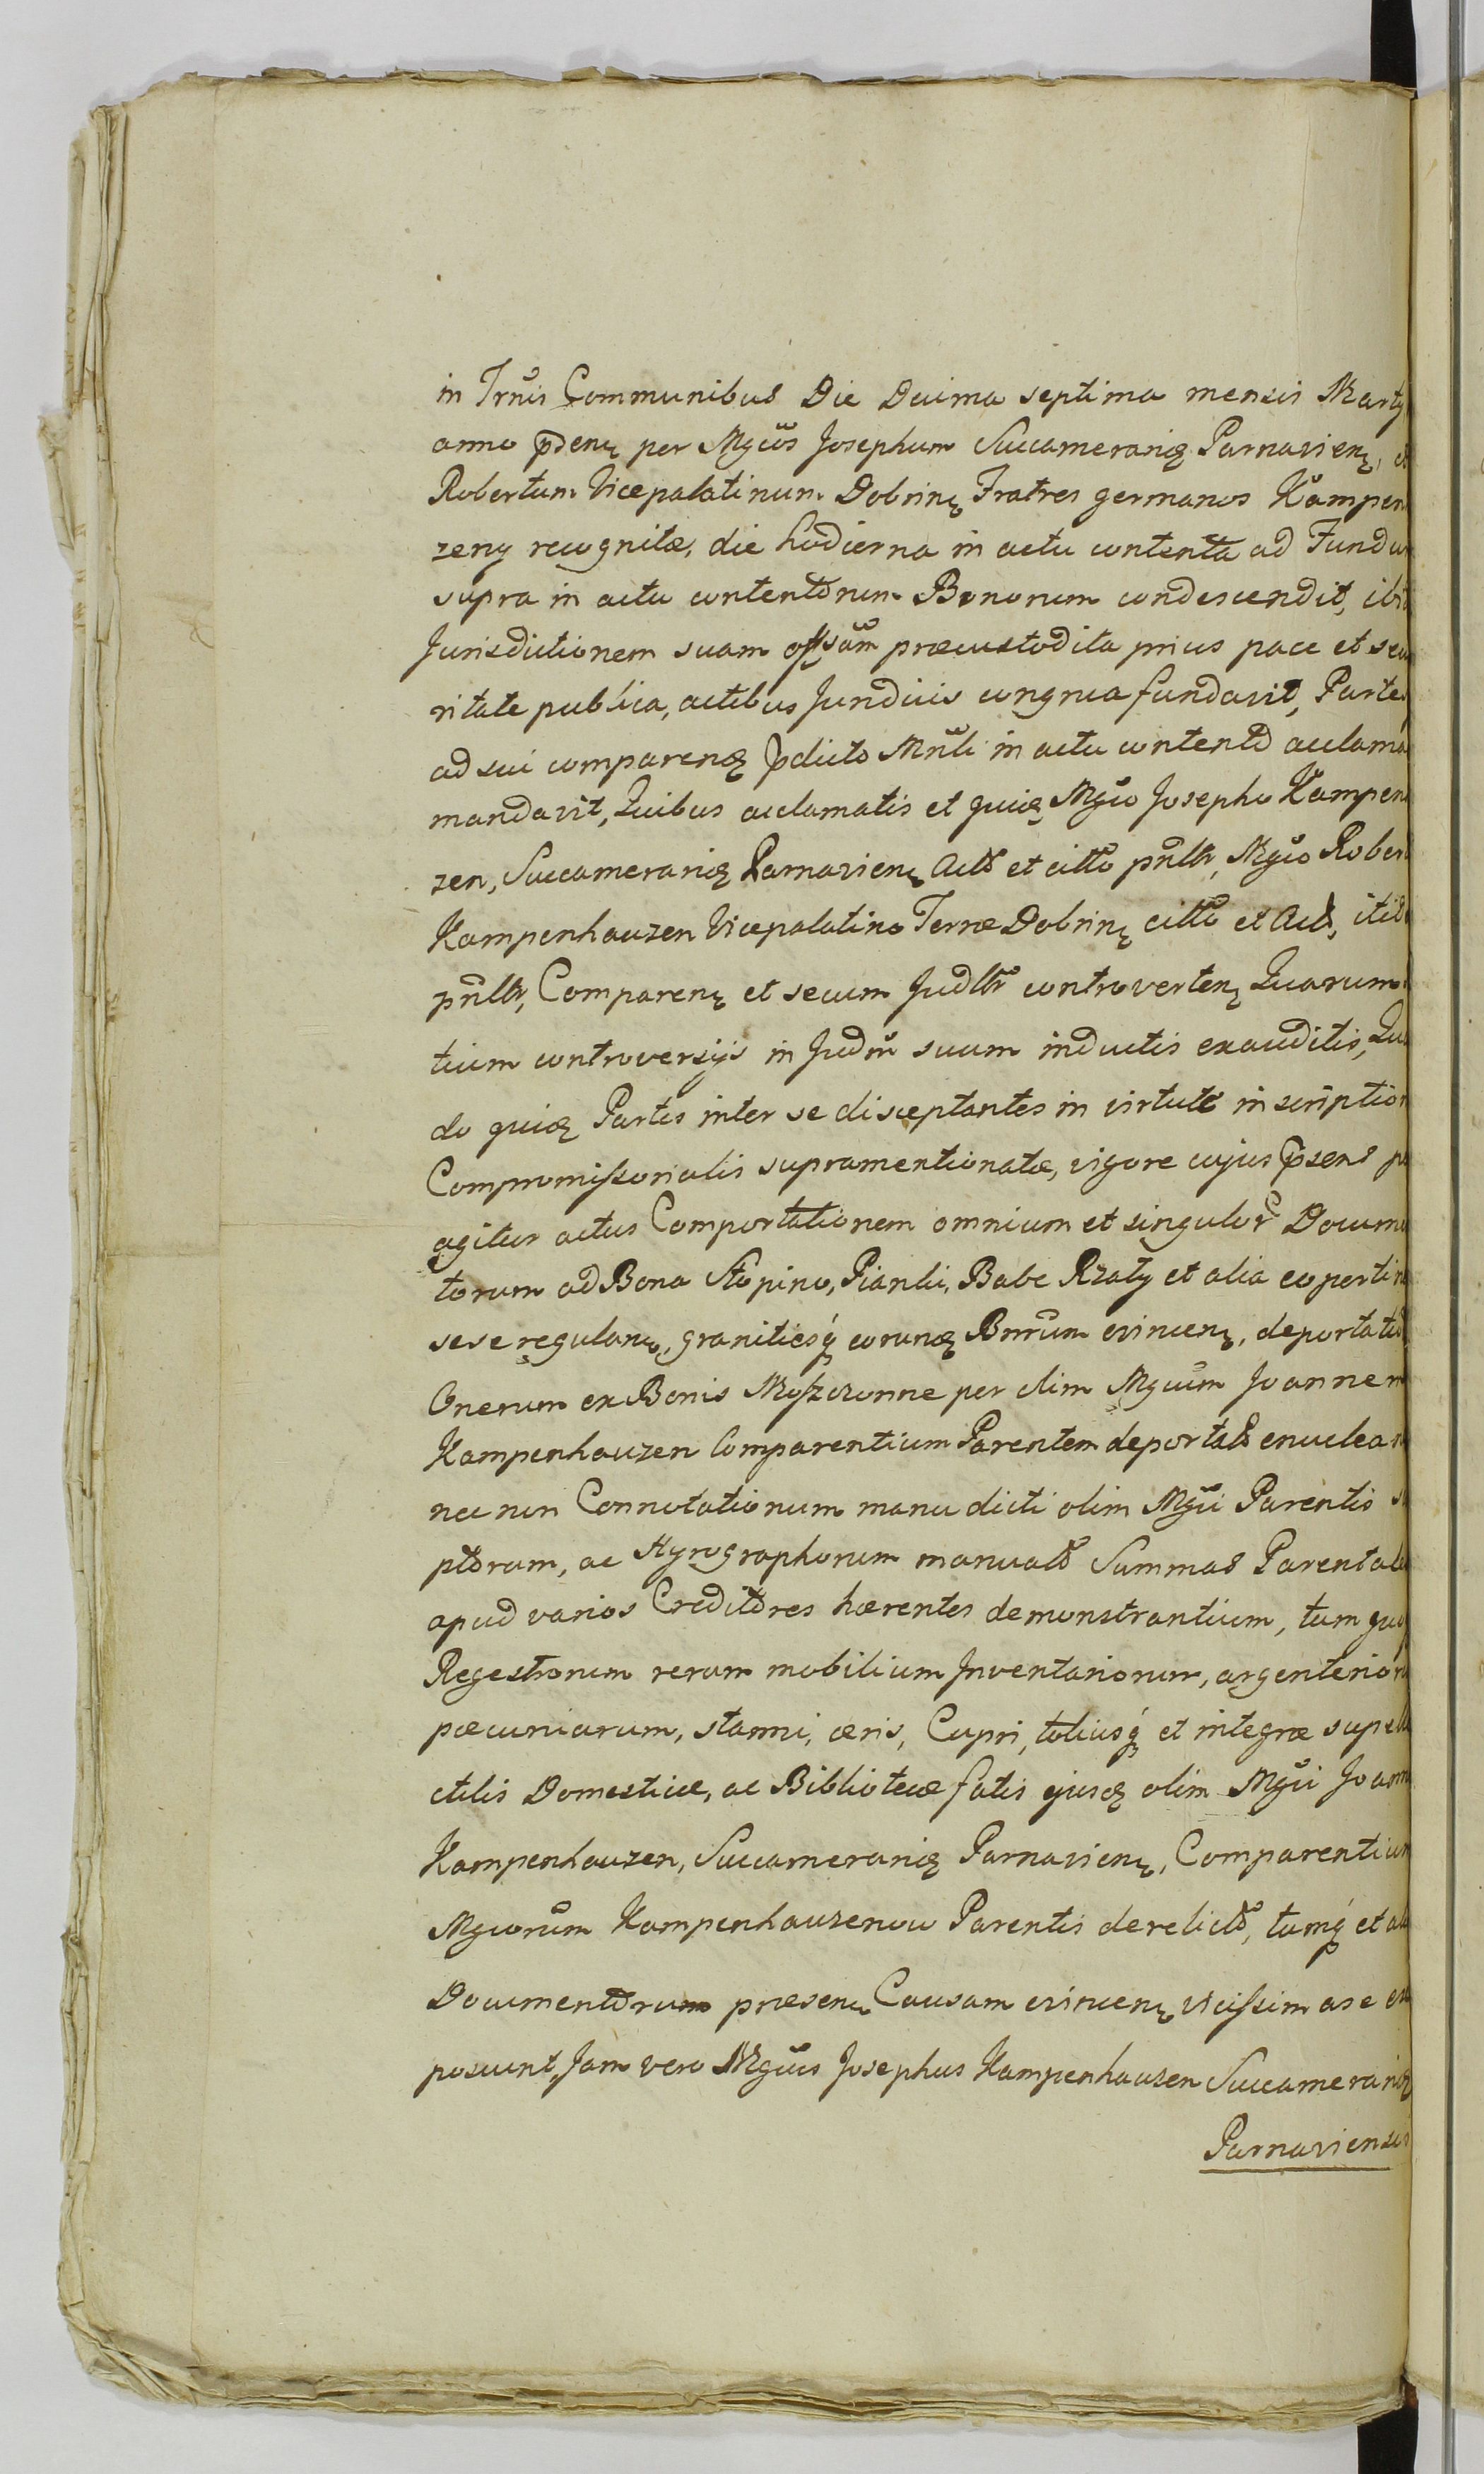 in Trñis Communibus Die Decima septima mensis Martÿ
anno p̃senŧ per Mgcõs Josephum Succamerariũ Parnavienŧ, et
Robertum Vicepalatinum Dobrinŧ Fratres germanos Kampen
zeny recognitæ, die hodierna in actu contenta ad Fundum
supra in actu contentorum Bonorum condescendit, ibi
Jurisdictionem suam offsãm præcustodita prius pace et secu
ritate publica, actibus Jundicis congrua fundavit, Partes
ad sui comparenŧ p̃dicto Mrãli in actu contento acclama
mandavit, Quibus acclamatis et quidẽ Mgco Josepho Kampen
zen, Succamerarið Parnavienŧ Acto et citto pñltr, Mgco Rober
Kampenhauzen Vicepalatino Terræ Dobrinŧ citto et Acto, itid
pñltr, Comparenŧ et secum Judltr controvertenŧ Quarum
tium controversijs in Judm suum inductis exauditis, Qu
do quidẽ Partes inter se disceptantes in virtute inscription
Compromissorialis supramentionatæ, vigore cujus p̃sens p
agitur actus Comportationem omnium et singulor Docume
torum ad Bona Stopino, Pianki, Babe Rzaty et alia eo pertin
sese regulanŧ, granitiesq; eorundẽ Bnrum evincenŧ, deportato
Onerum ex Bonis Moszczonne per olim Mgcum Joannem
Kampenhauzen Comparentium Parentem deportato enuclean
nec non Connotationum manu dicti olim Mgci Parentis s
ptorum, ac Hyrographorum manuało Summas Parentales
apud varios Creditores hærentes demonstrantium, tum quoq
Regestrorum rerum mobilium Inventariorum, argenterior
pæcuniarum, stanni, æris, Cupri, totiusq; et integræ supelle
ctilis Domesticæ, ac Bibliotecæ fatis ejusdẽ olim Mgci Joann
Kampenhauzen, Succamerarið Parnavienŧ, Comparentium
Mgcorum Kampenhauzenow Parentis derelicto, tamq; et ali
Documentorum præsenŧ Causam evincenŧ vicissim a se ex
poscunt, Jam vero Mgcus Josephus Kampenhauzen Succamerarið
Parnaviensis